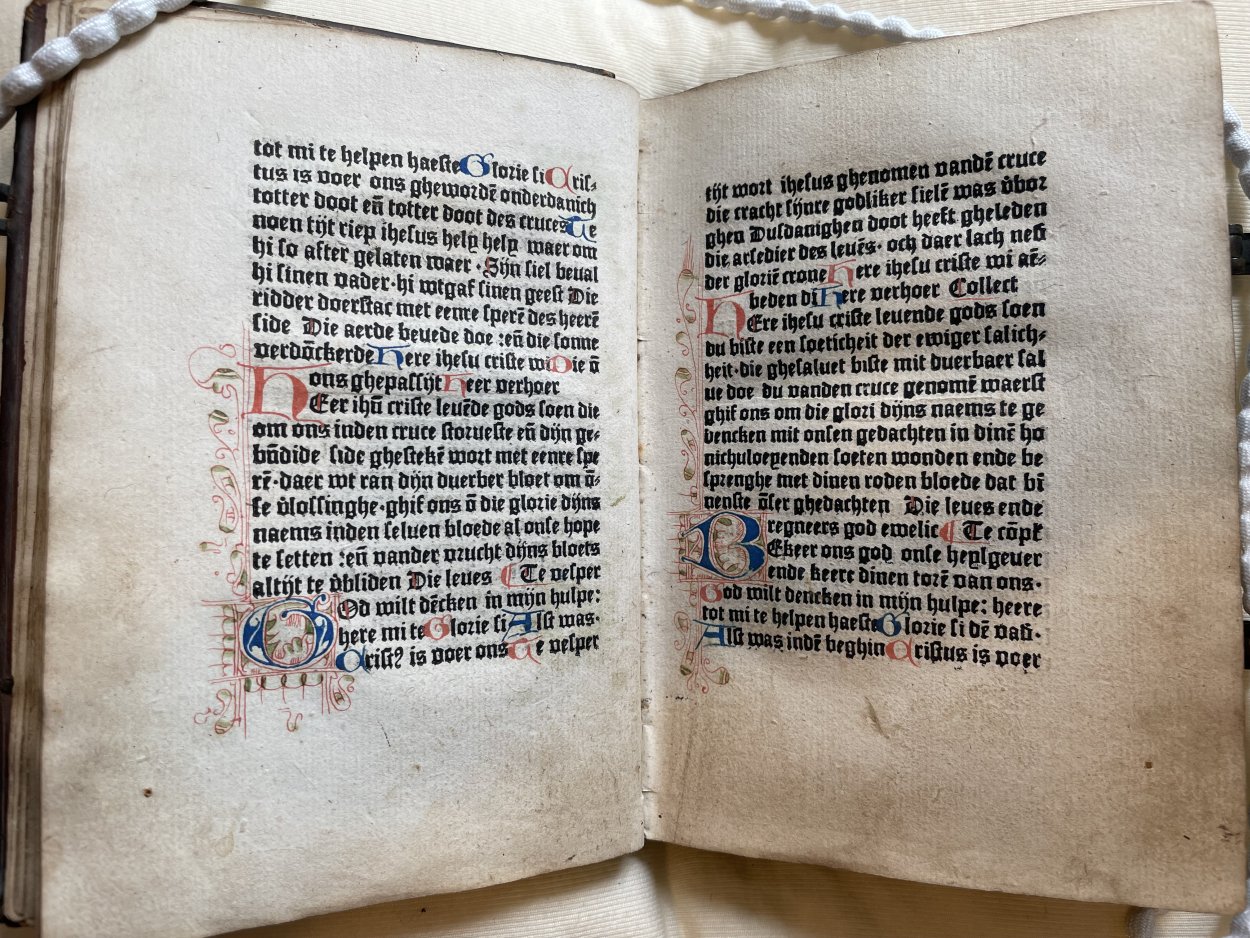 tot mi te helpen haeste Glorie si Cris⸗
tus is voer ons ghewordē onderdanich
totter doot eñ totter doot des cruces Te
noen tijt riep ihesus hely hely waer om
hi so after gelaten waer · Sijn siel beual
hi sinen vader · hi wtgaf sinen geest Die
ridder doerstac met eenre sperē des heerē
side Die aerde beuede doe :eñ die sonne
verdōckerde Here ihesu criste wi Die ō
ons ghepassijt Heer verhoer
HEer ihū criste leuēde gods soen die
om ons inden cruce storueste eñ dijn ge⸗
bn̄dide side ghestekē wort met eenre spe
rē · daer wt ran dijn duerber bloet om ō⸗
se v̄lossinghe · ghif ons ō die glorie dijns
naems inden seluen bloede al onse hope
te setten :eñ vander vrucht dijns bloets
altijt te v̄bliden Die leues ¶ Te vesper
GOd wilt dēcken in mijn hulpe:
here mi te Glorie si Alst was ·
Crist9 is voer ons Te vesper
tijt wort ihesus ghenomen vandē cruce
die cracht sijnre godliker sielē was v̄bor
ghen Dusdanighen doot heeft gheleden
die arsedier des leuēs · och daer lach neß
der gloriē crone Here ihesu criste wi aē⸗
beden di Here verhoer Collect
HEre ihesu criste leuende gods soen
du biste een soeticheit der ewiger salich⸗
heit · die ghesaluet biste mit duerbaer sal
ue doe du vanden cruce genomē waerst
ghif ons om die glori dijns naems te ge
dencken mit onsen gedachten in dinē ho
nichuloeyenden soeten wonden ende be
sprenghe met dinen roden bloede dat bī
nenste ōser ghedachten Die leues ende
regneers god ewelic ¶ Te cōpł
BEkeer ons god onse heylgeuer
ende keert dinen torē van ons ·
God wilt dencken in mijn hulpe: heere
tot mi te helpen haeste Glorie si dē vad ·
Alst was indē beghin Cristus is voer